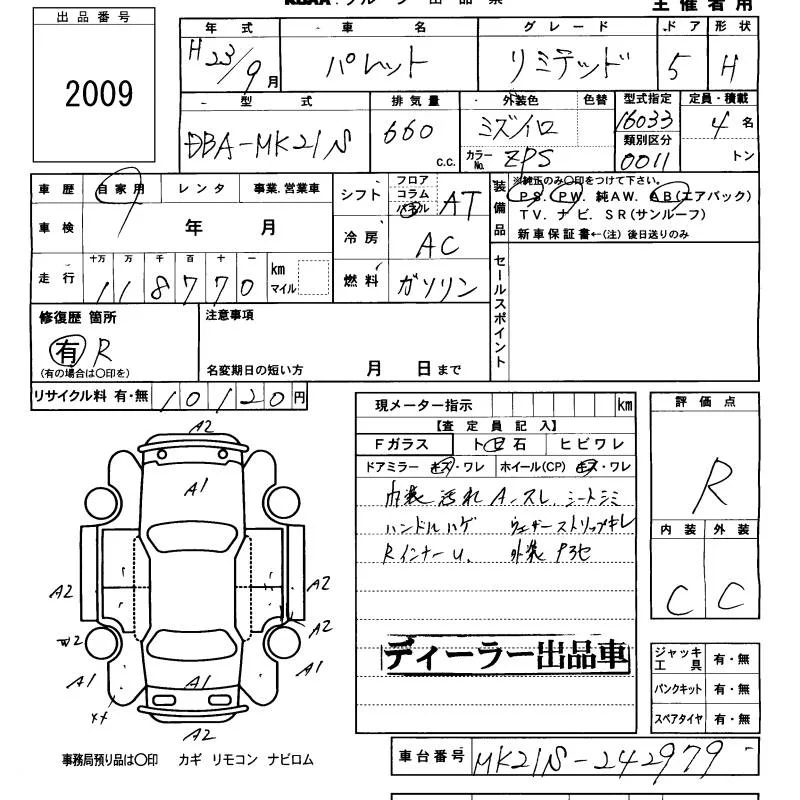 グループ 出品票
主催者用
出品番号
2009
年式 車名 グレード ドア 形状
H23/9月 パレット リミテッド 5 H
型式 排気量 外装色 色替 型式指定 定員・積載
DBA-MK21S 660 c.c. ミズイロ 16033 4名
カラーNo. ZPS 類別区分 0011 トン
車歴 自家用 レンタ 事業.営業車
車検 年 月
走行 十万 万 千 百 十 一 km マイル
118770
シフト フロア コラム パネル AT
冷房 AC
燃料 ガソリン
装備品 ※純正のみ〇印をつけて下さい。
PS. PW. 純AW. AB(エアバック)
TV. ナビ. SR(サンルーフ)
新車保証書←(注)後日送りのみ
セールスポイント
修復歴 箇所
有 R
(有の場合は〇印を)
注意事項
名変期日の短い方 月 日まで
リサイクル料 有・無 10120円
現メーター指示 km
【査定員記入】
Fガラス ト日石 ヒビワレ
ドアミラー キズ・ワレ ホイール(CP) キズ・ワレ
内装 汚れ A.スレ. シートシミ
ハンドルハゲ ウェザーストリップキレ
Rインナーu. 外装 P3セ
ディーラー出品車
評価点
R
内装 外装
C C
A2
A1
A2 A2
W2 A2
A1 A1
A1
XX
A2
ジャッキ工具 有・無
パンクキット 有・無
スペアタイヤ 有・無
事務局預り品は〇印 カギ リモコン ナビロム
車台番号 MK21S-242979